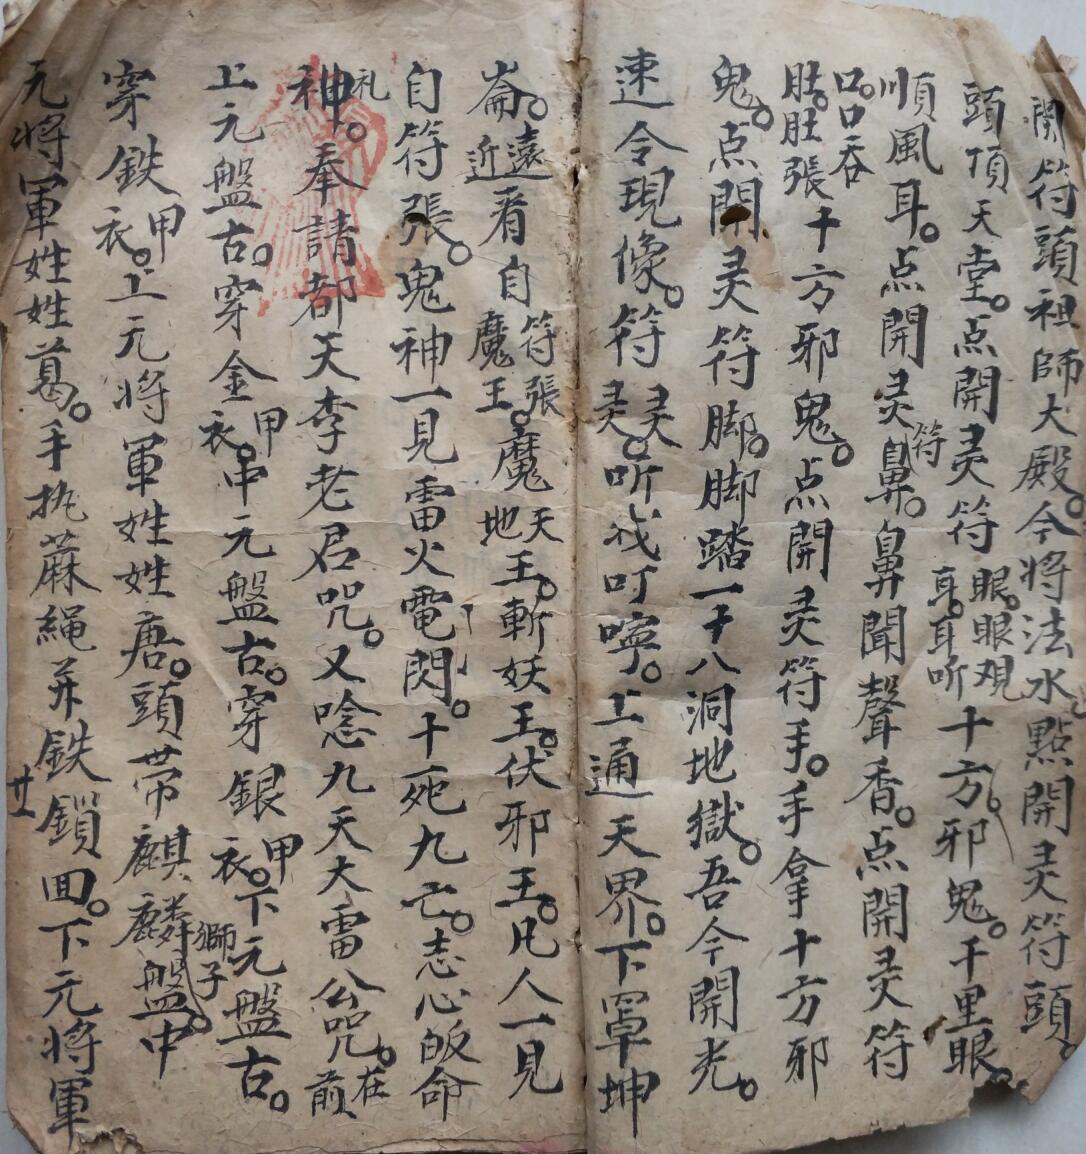 開符頭祖師大殿。今將法水。點開灵符頭。
頭頂天堂。点開灵符眼。眼观耳。耳听十方邪鬼。千里眼。
順風耳。点開灵符鼻。鼻聞聲香。点開灵符
口。口吞肚。肚張十方邪鬼。点開灵符手。手拿十方邪
鬼。点開灵符脚。脚踏一十八洞地獄。吾今開光。
速令現像。符灵灵。听我叮嚀。上通天界。下罩坤
崙。遠近看自符張魔王。魔天地王。斬妖王。伏邪王。凡人一見
自符張。鬼神一見雷火電閃。十死九亡。志心皈命
礼神。奉請都天李老君咒。又唸九天大雷公咒。在前
上元盤古。穿金甲衣。中元盤古。穿銀甲衣。下元盤古。
穿鉄甲衣。上元将軍姓姓唐。頭带麒麟獅子盤。中
元将軍姓姓葛。手执蔴繩并鉄鎖回。下元将軍
廿一